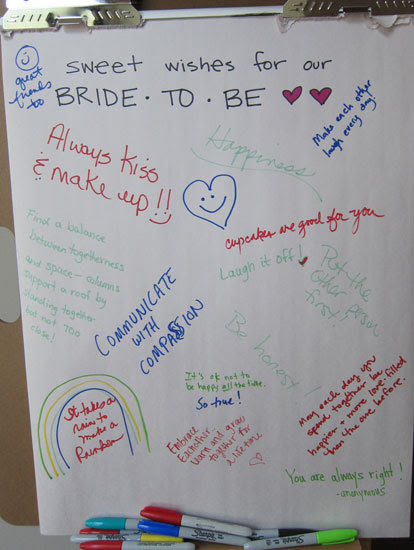 great
friends
too
sweet wishes for our
BRIDE · TO · BE
Make each other
laugh every day!
Always Kiss
& make up!!
Happiness
cupcakes are good for you
Find a balance
between togetherness
and space - columns
support a roof by
standing together
but not TOO
close!
Laugh it off!
Put the
other person
first!
COMMUNICATE
WITH
COMPASSION
Be honest!
It's ok not to
be happy all the time.
So true!
It takes a
rain to
make a
Rainbow
Embrace
Eachother
learn and grow
together for
a life time
May each day you
spend together be
happier + more love filled
than the one before.
You are always right!
-anonymous
Sharpie
Sharpie
Sharpie